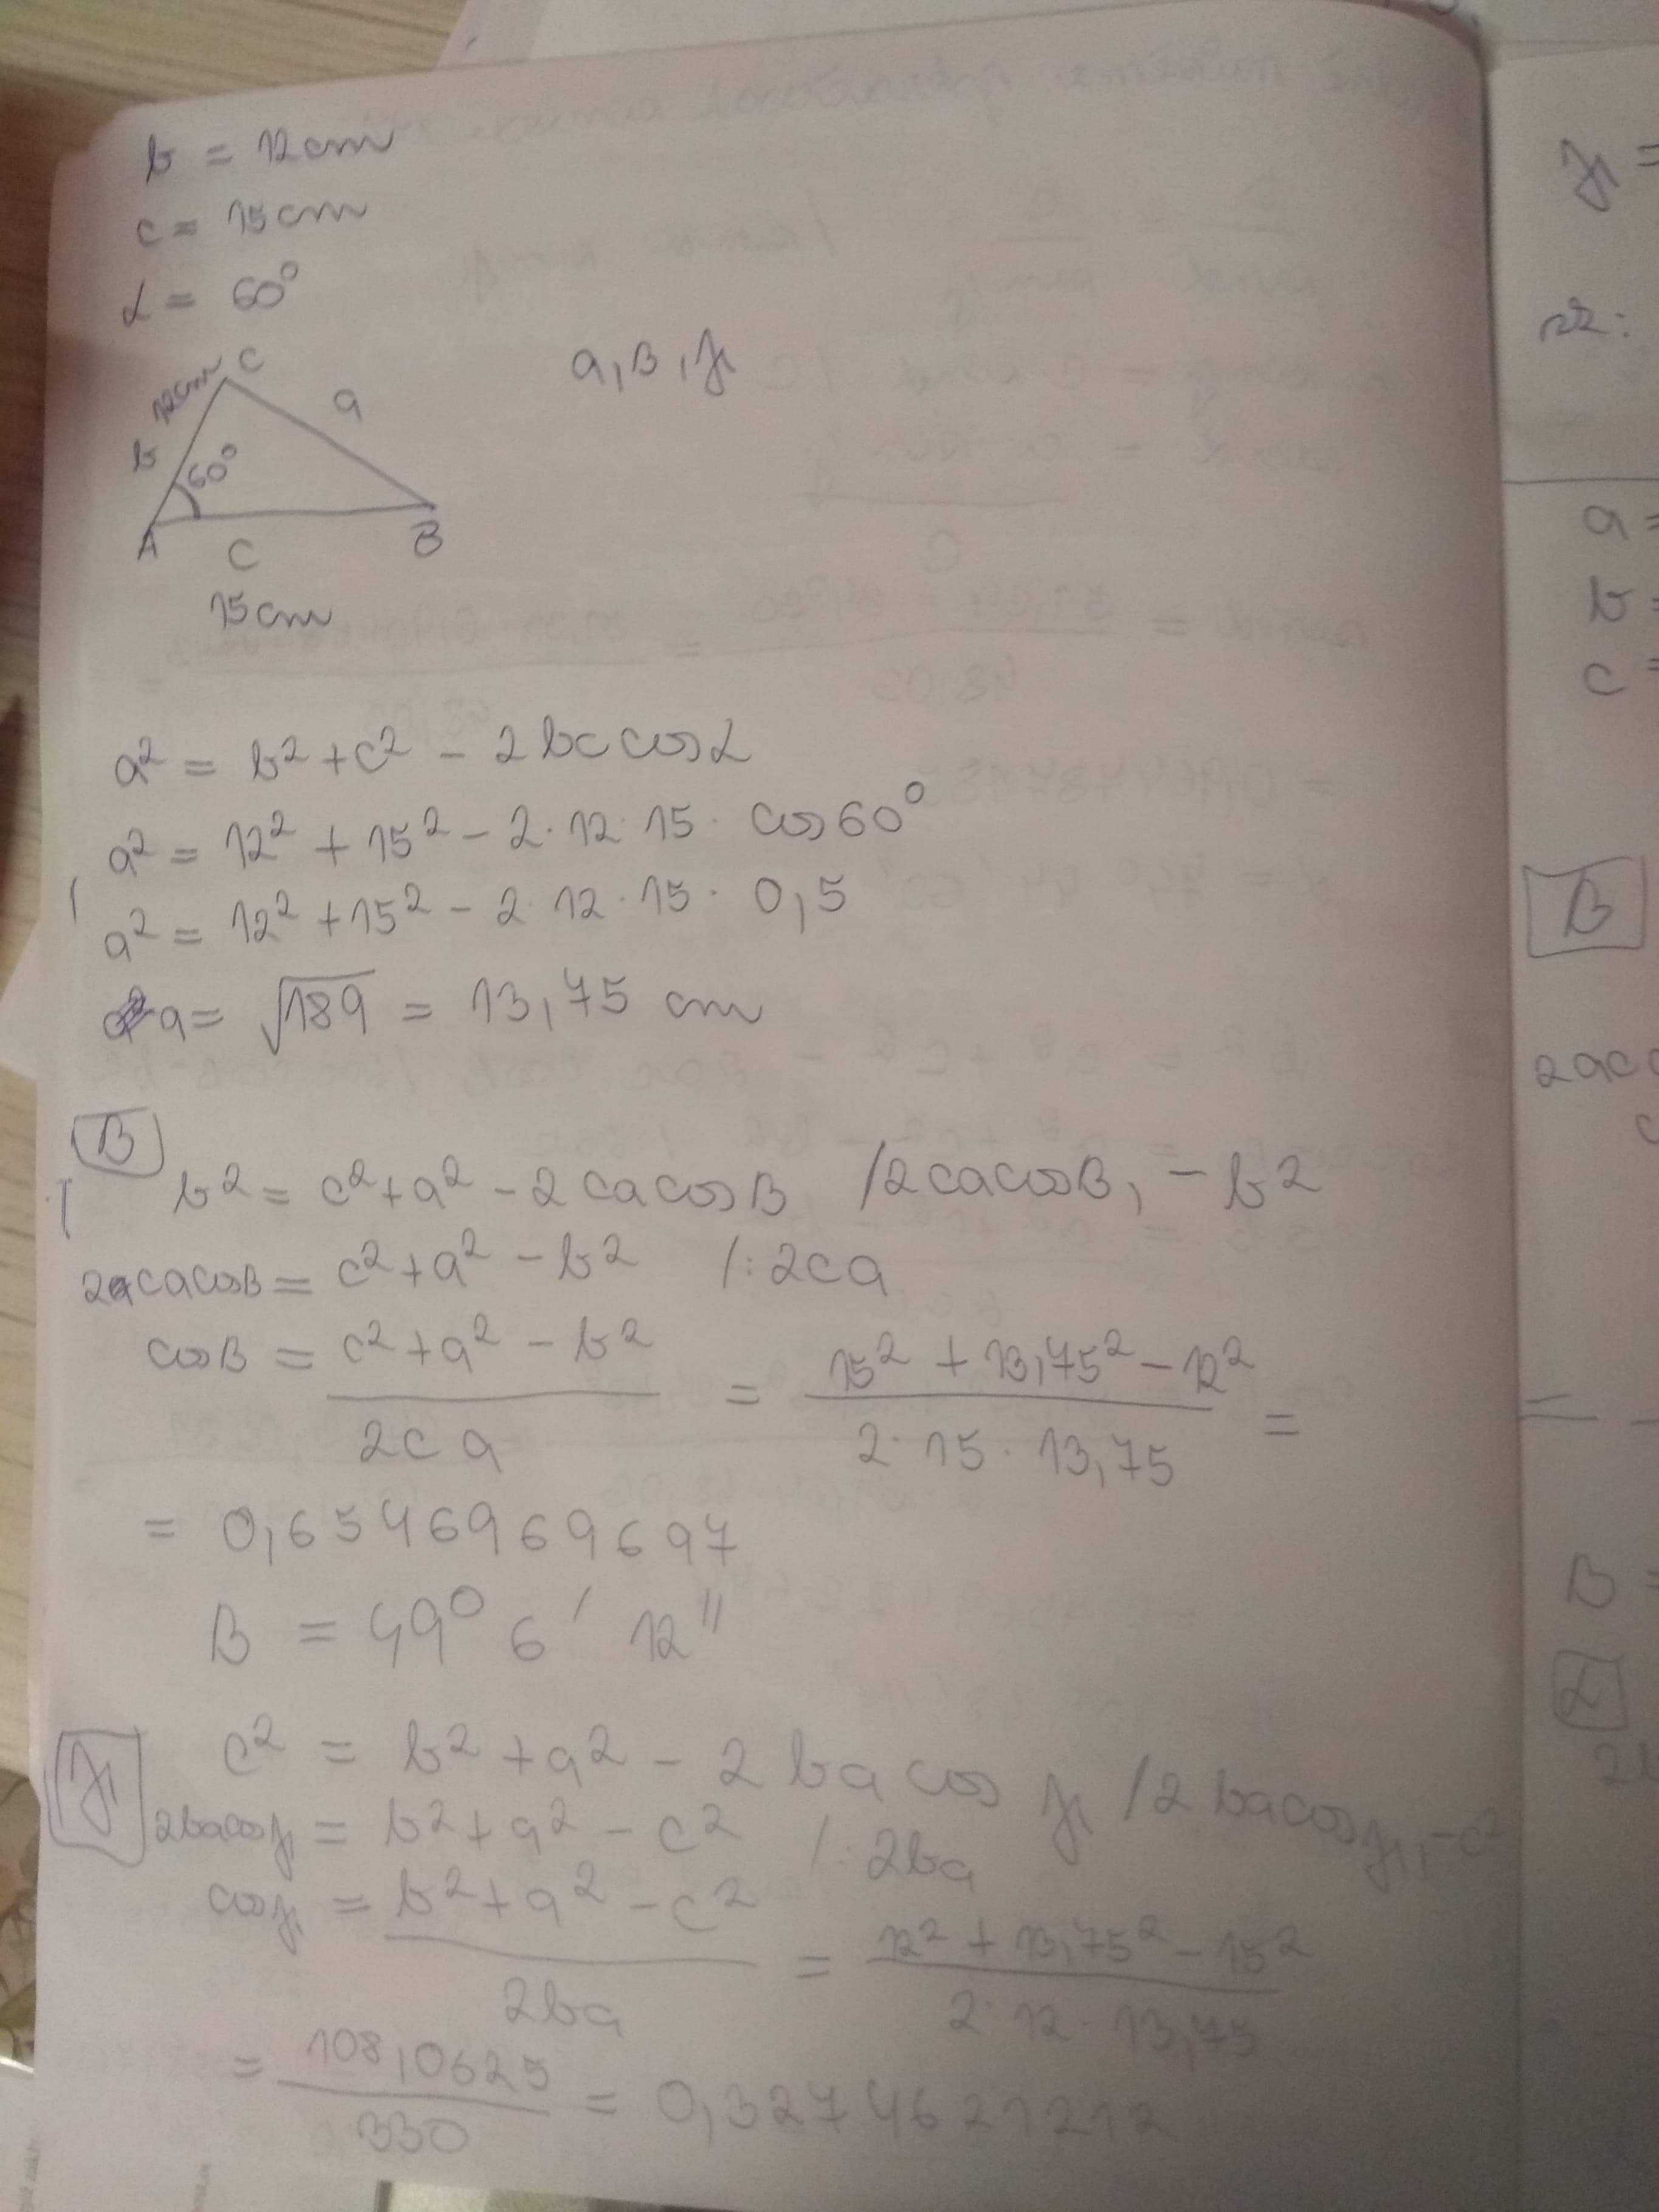 b = 12cm
c = 15cm
α = 60°
a, β, γ
C
12cm
a
b
60°
A
B
C
15cm
a² = b² + c² - 2bc cosα
a² = 12² + 15² - 2·12·15· cos60°
a² = 12² + 15² - 2·12·15· 0,5
a = √189 = 13,75 cm
β
b² = c² + a² - 2cacosβ /2cacosβ, -b²
2cacosβ = c² + a² - b² /:2ca
cosβ = c² + a² - b² / 2ca = 15² + 13,75² - 12² / 2·15·13,75 =
= 0,6546969697
β = 49° 6' 12"
γ
c² = b² + a² - 2ba cos γ /2bacosγ, -c²
2bacosγ = b² + a² - c² /:2ba
cosγ = b² + a² - c² / 2ba = 12² + 13,75² - 15² / 2·12·13,75
= 108,0625 / 330 = 0,3274621212
γ =
a =
b =
c =
β
β =
α